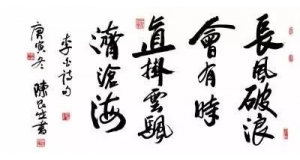 長風破浪
會有時
直掛雲颿
濟滄海
李白詩句
庚寅冬 陳